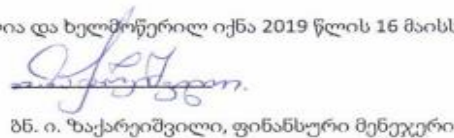 ია და ხელმოწერილ იქნა 2019 წლის 16 მაისს
ბნ. ი. ზაქარეიშვილი, ფინანსური მენეჯერი